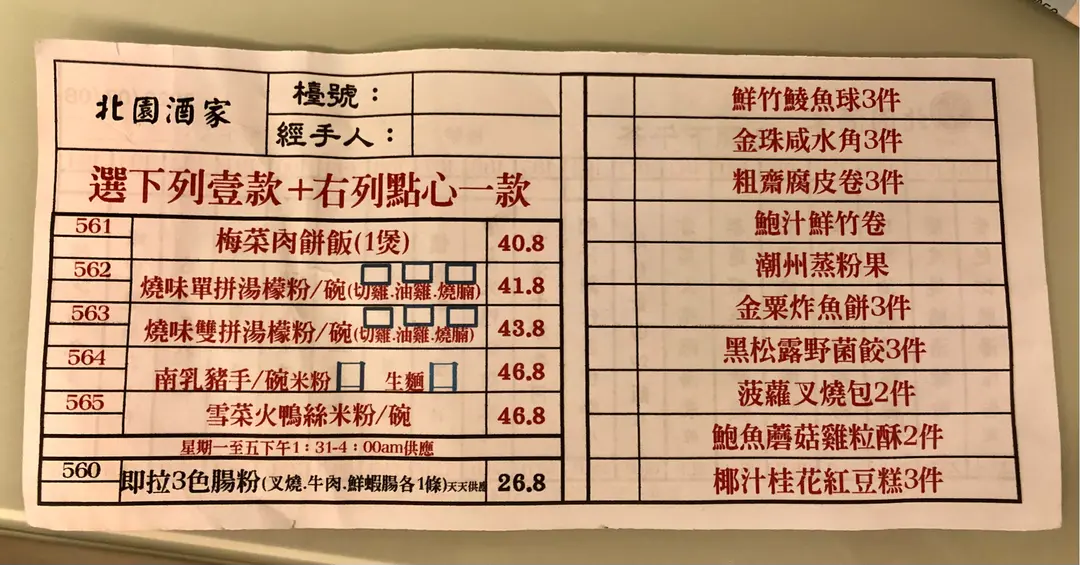 北園酒家
檯號：
經手人：
選下列壹款+右列點心一款
561 梅菜肉餅飯(1煲) 40.8
562 燒味單拼湯檬粉/碗(切雞.油雞.燒腩) 41.8
563 燒味雙拼湯檬粉/碗(切雞.油雞.燒腩) 43.8
564 南乳豬手/碗米粉 生麵 46.8
565 雪菜火鴨絲米粉/碗 46.8
星期一至五下午1：31-4：00am供應
560 即拉3色腸粉(叉燒.牛肉.鮮蝦腸各1條)天天供應 26.8
鮮竹鯪魚球3件
金珠咸水角3件
粗齋腐皮卷3件
鮑汁鮮竹卷
潮州蒸粉果
金粟炸魚餅3件
黑松露野菌餃3件
菠蘿叉燒包2件
鮑魚蘑菇雞粒酥2件
椰汁桂花紅豆糕3件